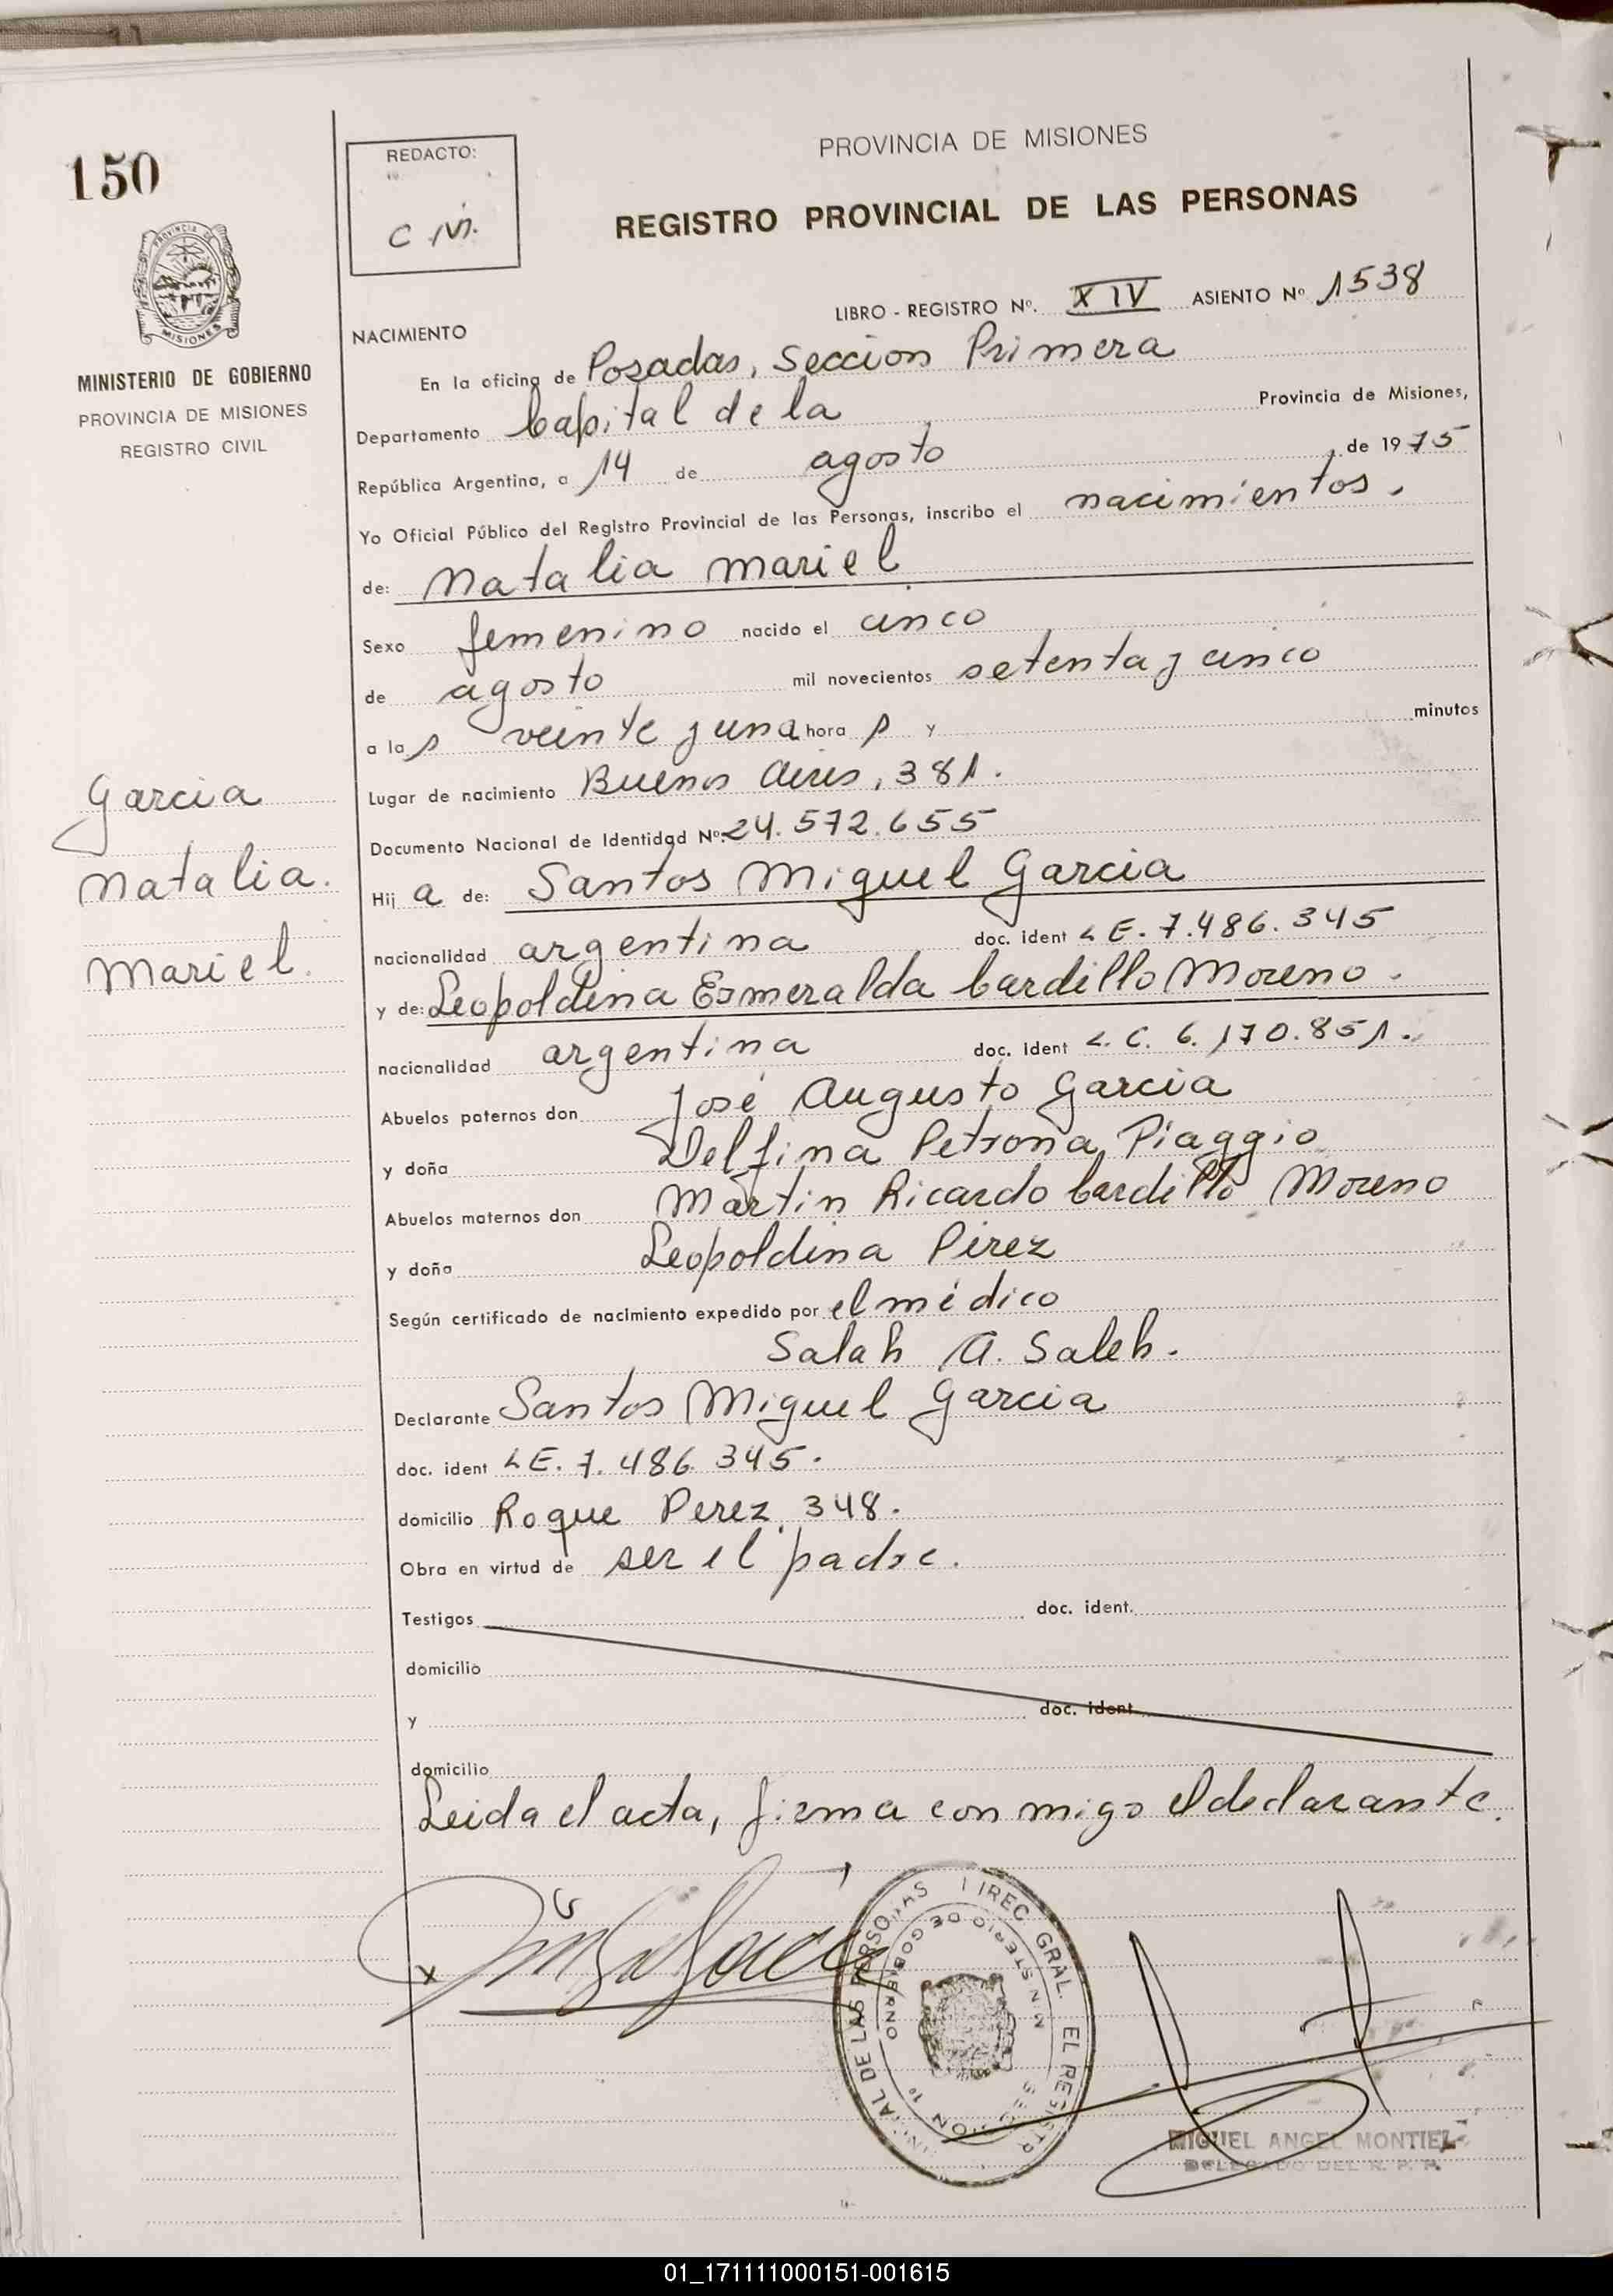 150
REDACTO:
PROVINCIA DE MISIONES
REGISTRO PROVINCIAL DE LAS PERSONAS
LIBRO - REGISTRO Nº. XIV ASIENTO Nº 1538
PROVINCIA DE
MISIONES
MINISTERIO DE GOBIERNO
PROVINCIA DE MISIONES
REGISTRO CIVIL
NACIMIENTO
En la oficina de Posadas, Seccion Primera
Departamento Capital de la Provincia de Misiones,
República Argentina, a 14 de agosto de 1975
Yo Oficial Público del Registro Provincial de las Personas, inscribo el nacimientos.
de: Natalia Mariel
Sexo femenino nacido el cinco
de agosto mil novecientos setenta y cinco
a la s veinte y una hora s y minutos
Lugar de nacimiento Buenos Aires, 381.
Documento Nacional de Identidad Nº. 24.572.655
Garcia
Natalia.
Mariel.
Hij a de: Santos Miguel Garcia
nacionalidad argentina doc. ident L E. 7.486.345
y de: Leopoldina Esmeralda Cardillo Moreno.
nacionalidad argentina doc. Ident L. C. 6.170.851.
Abuelos paternos don José Augusto Garcia
y doña Delfina Petrona Piaggio
Abuelos maternos don Martin Ricardo Cardillo Moreno
y doña Leopoldina Pérez
Según certificado de nacimiento expedido por el médico
Salah A. Saleh.
Declarante Santos Miguel Garcia
doc. ident L E. 7. 486. 345.
domicilio Roque Perez 348.
Obra en virtud de ser el padre.
Testigos doc. ident.
domicilio
y doc. ident
domicilio
Leida el acta, firma con migo el declarante.
MIGUEL ANGEL MONTIEL
DELEGADO DEL R. P. P.
01_171111000151-001615